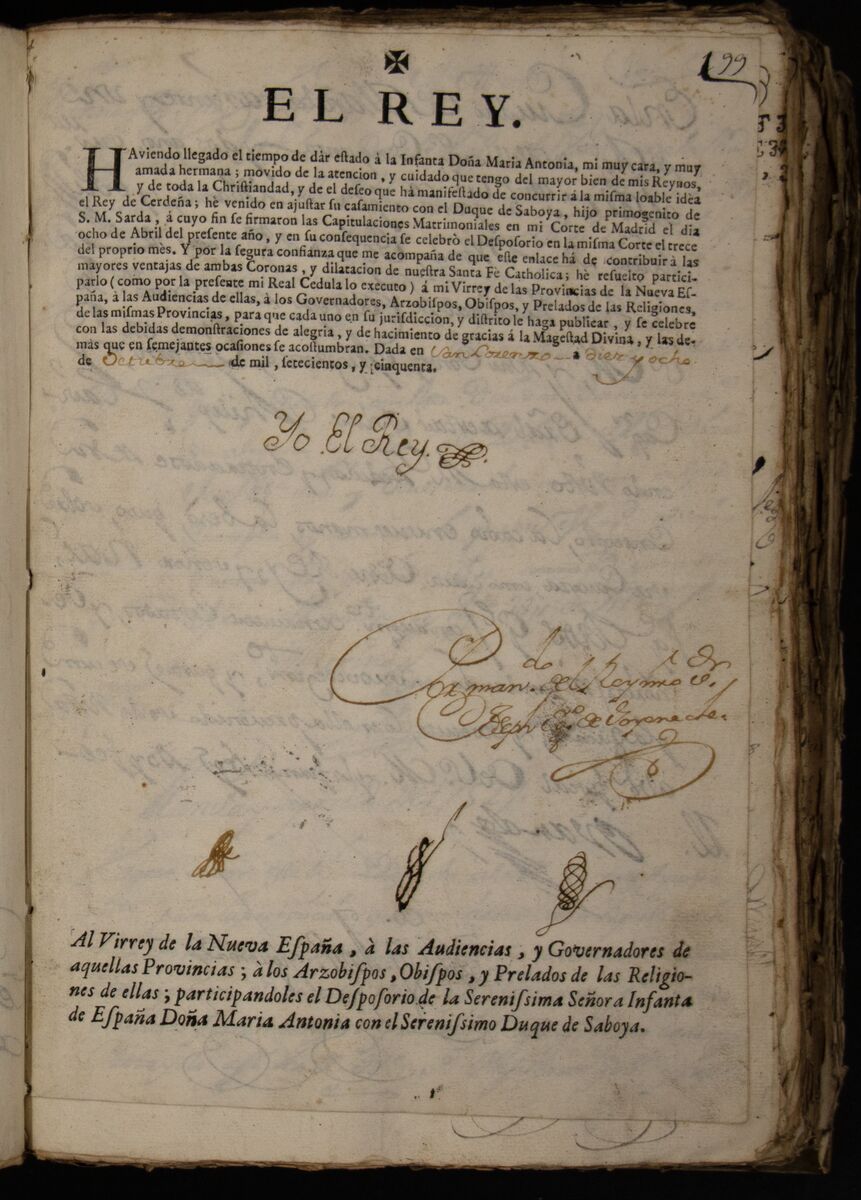 199
✠
EL REY.
HAviendo llegado el tiempo de dàr eſtado à la Infanta Doña Maria Antonia, mi muy cara, y muy
amada hermana ; movido de la atencion , y cuidado que tengo del mayor bien de mis Reynos,
y de toda la Chriſtiandad, y de el deſeo que hà manifeſtado de concurrir à la miſma loable idèa
el Rey de Cerdeña; hè venido en ajuſtar ſu caſamiento con el Duque de Saboya , hijo primogenito de
S. M. Sarda , à cuyo fin ſe firmaron las Capitulaciones Matrimoniales en mi Corte de Madrid el dia
ocho de Abril del preſente año , y en ſu conſequencia ſe celebrò el Deſpoſorio en la miſma Corte el trece
del proprio mès. Y por la ſegura confianza que me acompaña de que eſte enlace hà de contribuir à las
mayores ventajas de ambas Coronas , y dilatacion de nueſtra Santa Fè Catholica; hè reſuelto partici-
parlo ( como por la preſente mi Real Cedula lo executo ) à mi Virrey de las Provincias de la Nueva Eſ-
paña, à las Audiencias de ellas, à los Governadores, Arzobiſpos, Obiſpos, y Prelados de las Religiones,
de las miſmas Provincias, para que cada uno en ſu jurisdiccion, y diſtrito le haga publicar , y ſe celebre
con las debidas demonſtraciones de alegria , y de hacimiento de gracias à la Mageſtad Divina , y las de-
màs que en ſemejantes ocaſiones ſe acoſtumbran. Dada en San Lorenzo à diez y ocho
de Octubre de mil , ſetecientos , y cinquenta.
Yo El Rey.
Por man.do del Rey nro S.r
Al Virrey de la Nueva Eſpaña , à las Audiencias , y Governadores de
aquellas Provincias ; à los Arzobiſpos, Obiſpos , y Prelados de las Religio-
nes de ellas ; participandoles el Deſpoſorio de la Sereniſsima Señora Infanta
de Eſpaña Doña Maria Antonia con el Sereniſsimo Duque de Saboya.